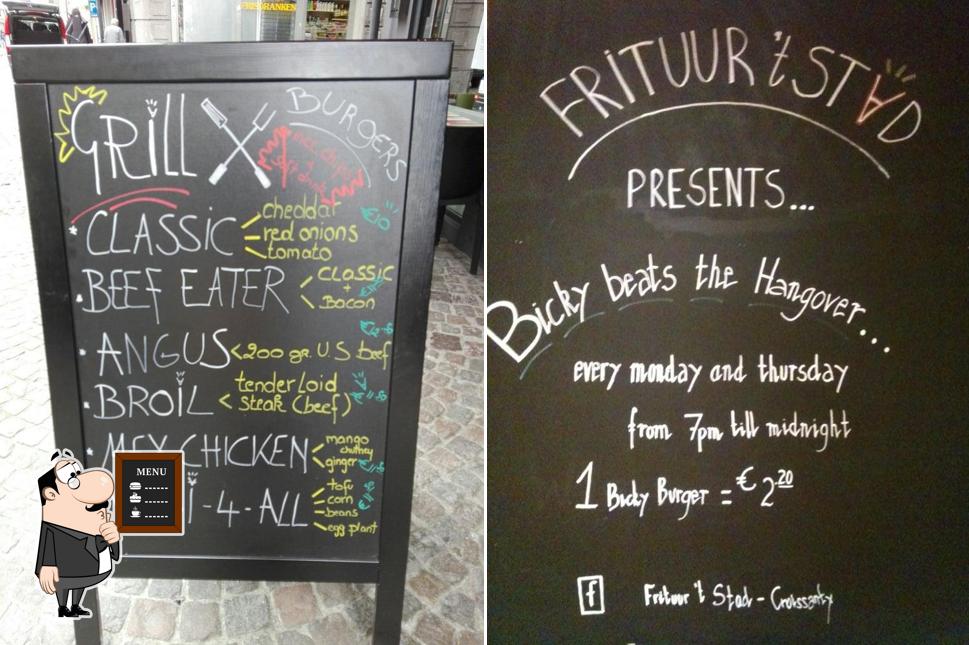 FRISDRANKEN
GRILL
BURGERS
incl. chips
+
soft drink
€10
CLASSIC
cheddar
red onions
tomato
BEEF EATER
CLASSIC
+
Bacon
ANGUS
200 gr. U.S. beef
BROIL
tenderloid
steak (beef)
CHICKEN
mango
chutney
ginger
-4-ALL
tofu
corn
beans
egg plant
MENU
FRITUUR 't STAD
PRESENTS...
Bicky beats the Hangover...
every monday and thursday
from 7pm till midnight
1 Bicky Burger = € 2.20
f Frituur 't Stad - Croissanty